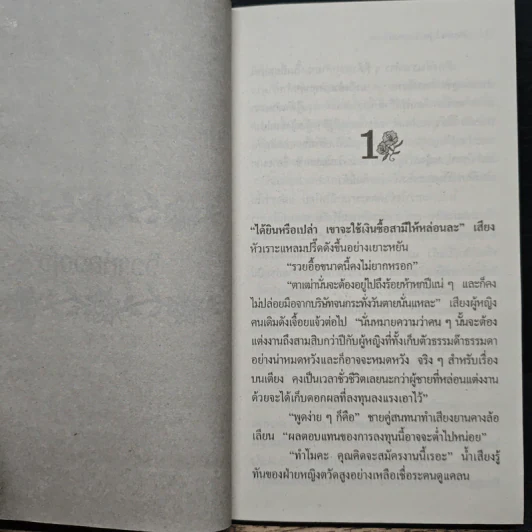 1
“ได้ยินหรือเปล่า เขาจะใช้เงินซื้อสามีให้หล่อนละ” เสียง
หัวเราะแหลมปรี๊ดดังขึ้นอย่างเยาะหยัน
“รวยอื้อขนาดนี้คงไม่ยากหรอก”
“ตาเฒ่านั่นจะต้องอยู่ไปถึงร้อยห้าหกปีแน่ ๆ และก็คง
ไม่ปล่อยมือจากบริษัทจนกระทั่งวันตายนั่นแหละ” เสียงผู้หญิง
คนเดิมดังเจื้อยแจ้วต่อไป “นั่นหมายความว่าคน ๆ นั้นจะต้อง
แต่งงานถึงสามสิบกว่าปีกับผู้หญิงที่ทั้งเก็บตัวธรรมด๊าธรรมดา
อย่างน่าหมดหวังและก็อาจจะหมดหวัง จริง ๆ สำหรับเรื่อง
บนเตียง คุงเป็นเวลาชั่วชีวิตเลยนะกว่าผู้ชายที่หล่อนแต่งงาน
ด้วยจะได้เก็บดอกผลที่ลงทุนลงแรงเอาไว้”
“พูดง่าย ๆ ก็คือ” ชายคู่สนทนาทำเสียงยานคางล้อ
เลียน “ผลตอบแทนของการลงทุนนี้อาจจะต่ำไปหน่อย”
“ทำไมคะ คุณคิดจะสมัครงานนี้เรอะ” น้ำเสียงรู้
ทันของฝ่ายหญิงตวัดสูงอย่างเหลือเชื่อระคนดูแคลน